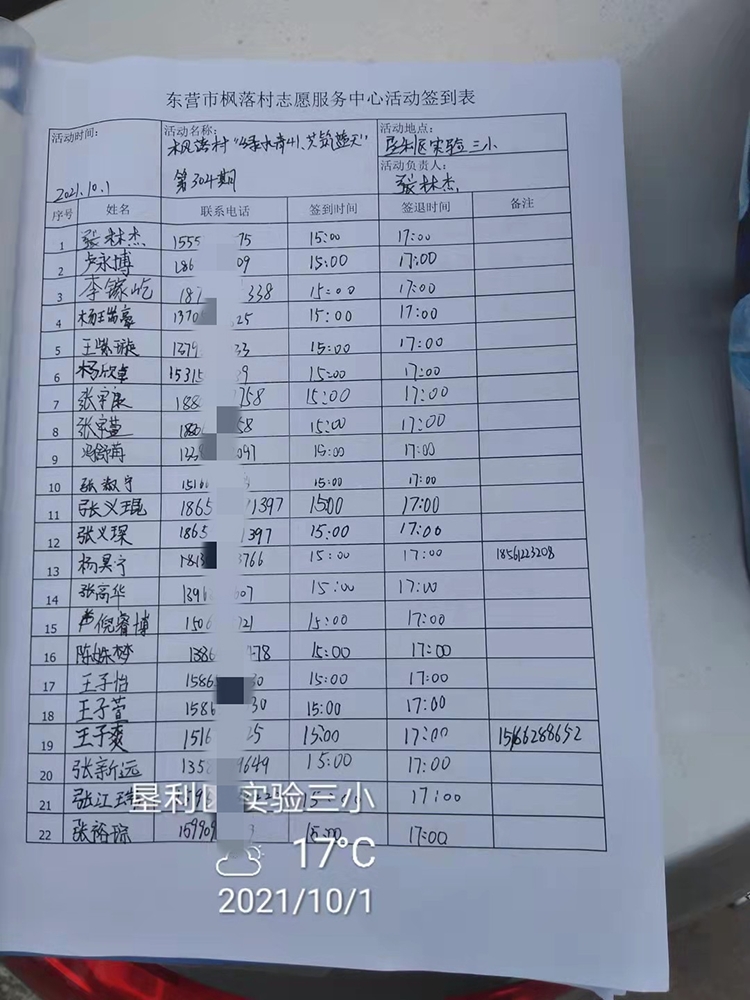 东营市枫落村志愿服务中心活动签到表
活动时间: 2021.10.1
活动名称: 枫落村"绿水青山、共筑蓝天" 第304期
活动地点: 垦利区实验三小
活动负责人: 张林杰
序号 姓名 联系电话 签到时间 签退时间 备注
1 张林杰 1555 75 15:00 17:00
2 卢永博 186 09 15:00 17:00
3 李镓屹 187 338 15:00 17:00
4 杨王崇豪 1370 25 15:00 17:00
5 王紫璇 1379 33 15:00 17:00
6 杨欣卓 15315 9 15:00 17:00
7 张宇辰 188 758 15:00 17:00
8 张宇萱 188 58 15:00 17:00
9 冯舒苒 133 097 15:00 17:00
10 张淑宁 1516 15:00 17:00
11 张义琨 1865 1397 15:00 17:00
12 张义琛 1865 1397 15:00 17:00
13 杨昊宁 1813 3766 15:00 17:00 18561223208
14 张高华 1396 607 15:00 17:00
15 卢倪睿博 1506 721 15:00 17:00
16 陈姝梦 1386 78 15:00 17:00
17 王子怡 1586 30 15:00 17:00
18 王子萱 1586 30 15:00 17:00
19 王子爽 1516 25 15:00 17:00 15166288652
20 张新远 135 9649 15:00 17:00
21 张江 15:00 17:00
22 张裕琮 15990 3 15:00 17:00
垦利区实验三小
17°C
2021/10/1